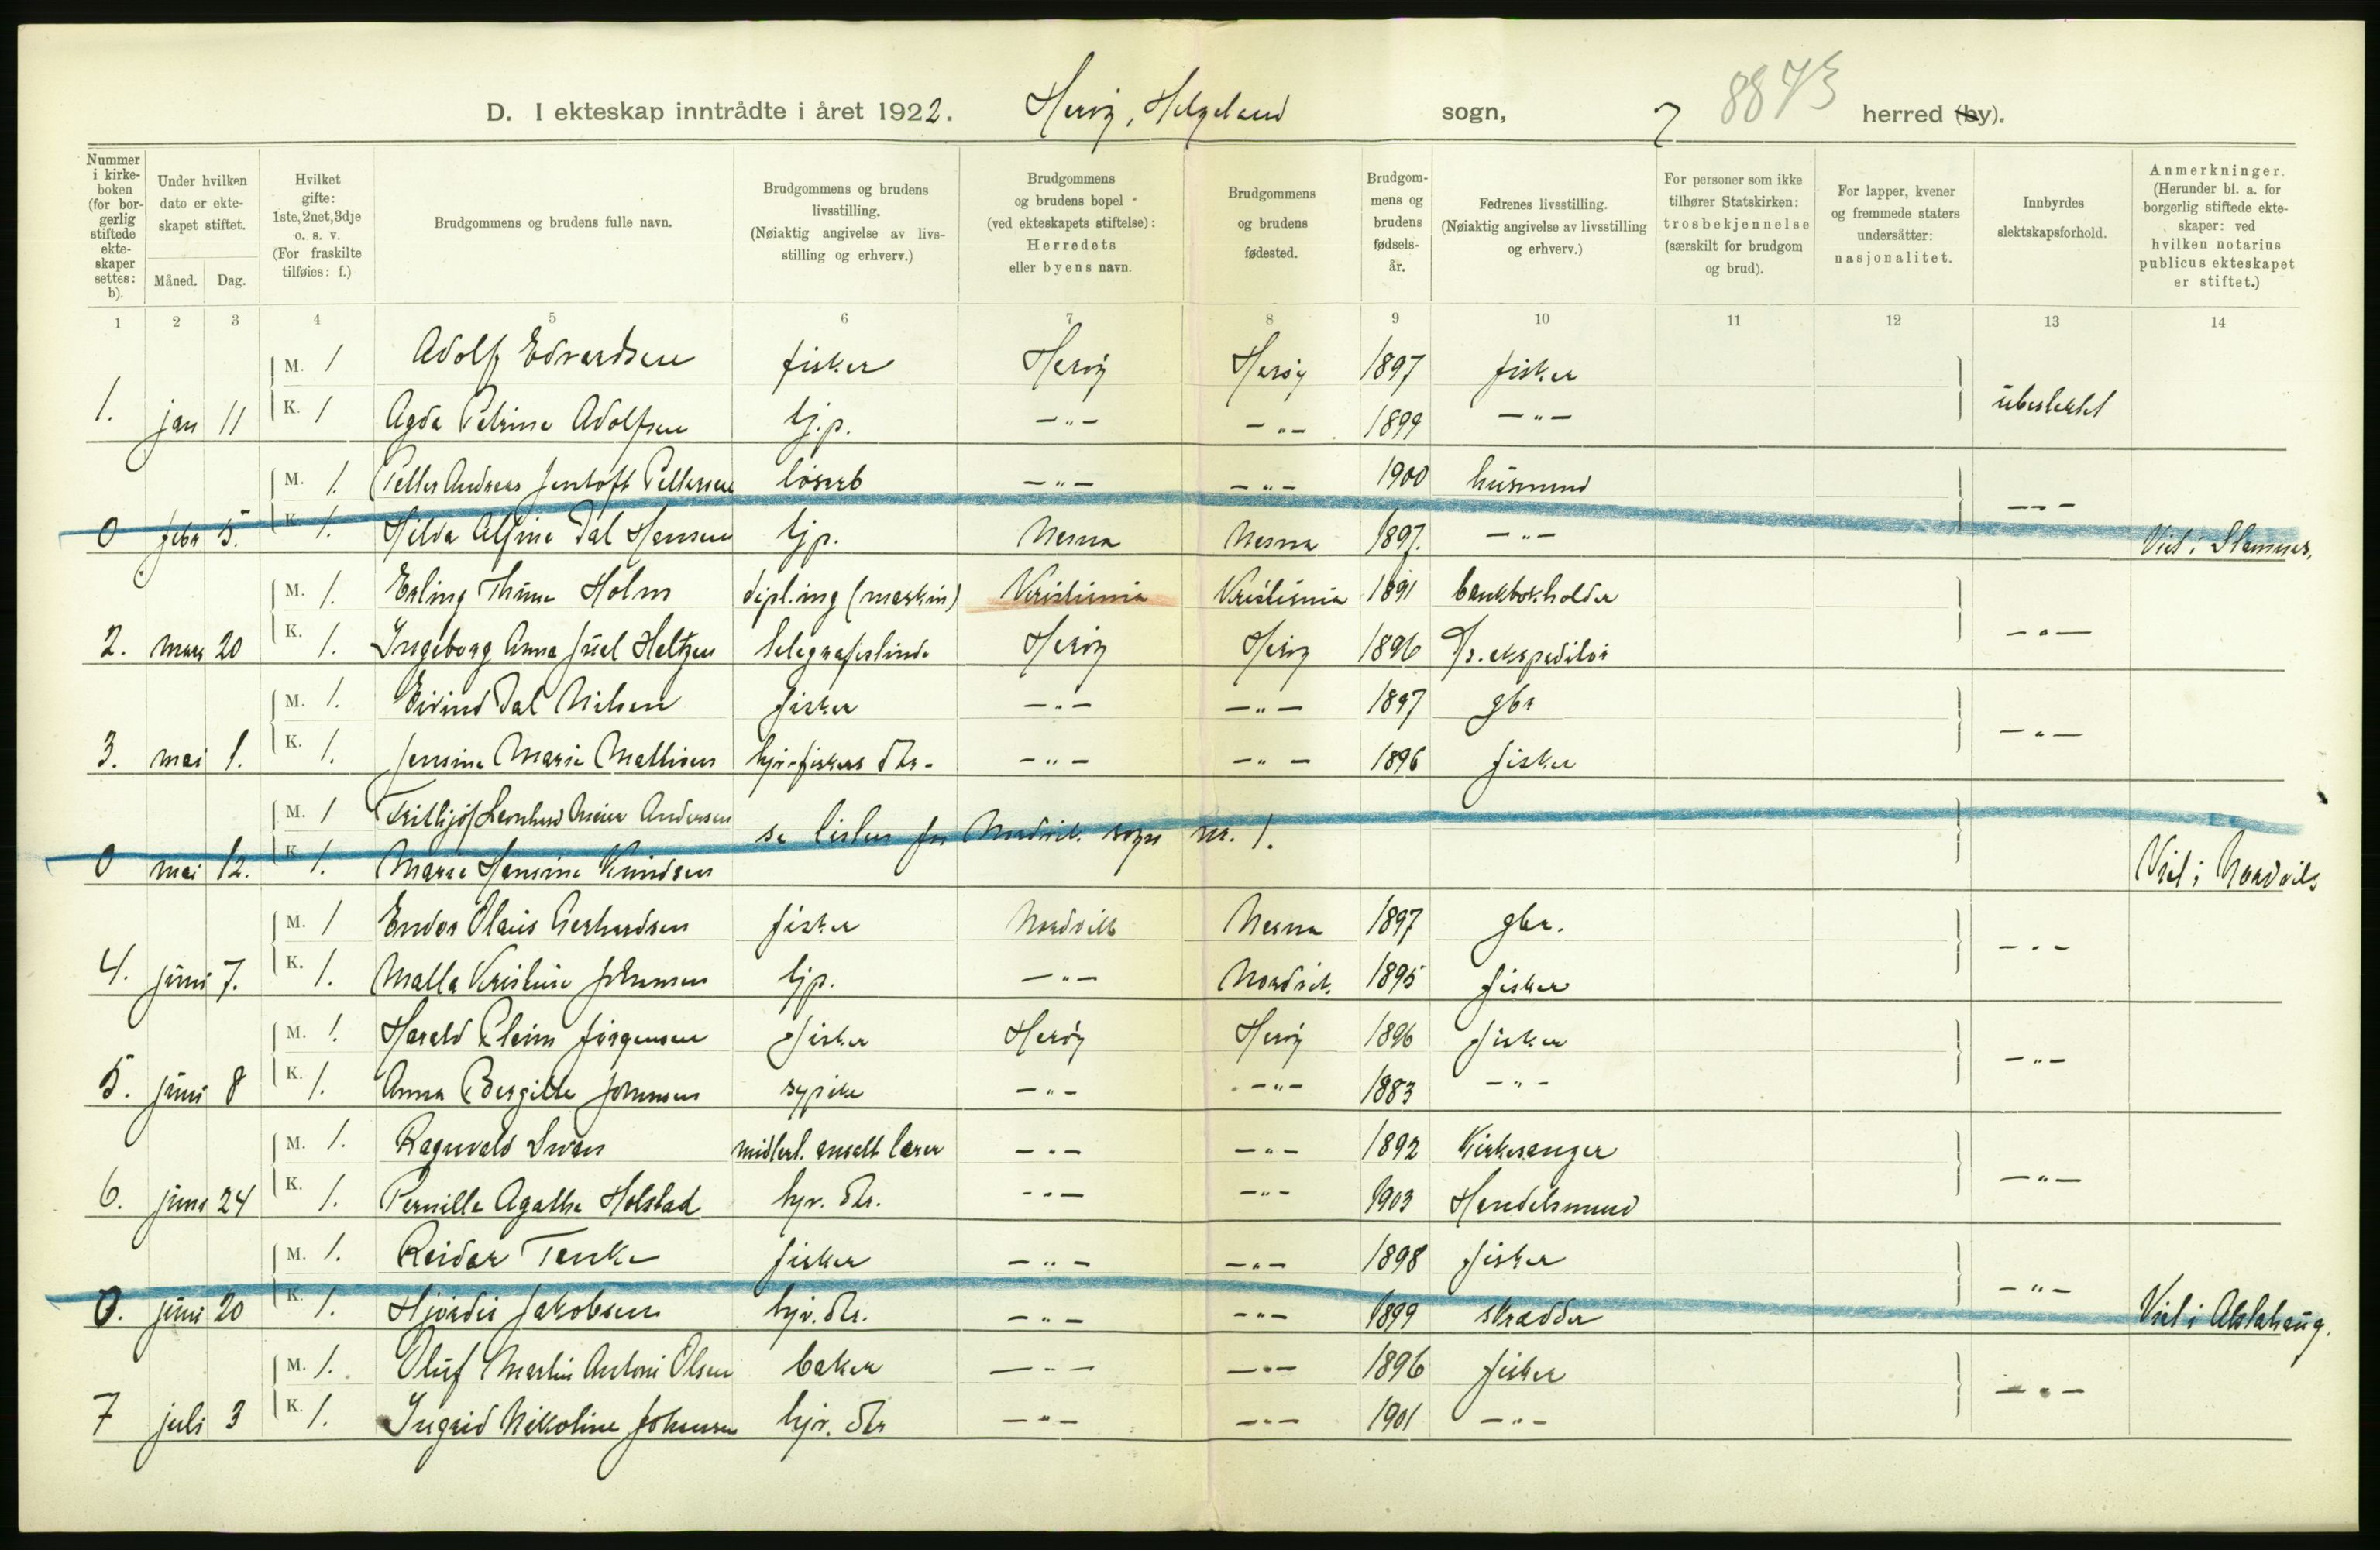 8873
D. I ekteskap inntrådte i året 1922. Herøy, Helgeland sogn, herred (by).
Nummer i kirke-boken (for bor-gerlig stiftede ekte-skaper settes: b).
Under hvilken dato er ekte-skapet stiftet.
Måned. Dag.
Hvilket gifte: 1ste, 2net, 3dje o. s. v. (For fraskilte tilføies: f.)
Brudgommens og brudens fulle navn.
Brudgommens og brudens livsstilling. (Nøiaktig angivelse av livs-stilling og erhverv.)
Brudgommens og brudens bopel (ved ekteskapets stiftelse): Herredets eller byens navn.
Brudgommens og brudens fødested.
Brudgom-mens og brudens fødsels-år.
Fedrenes livsstilling. (Nøiaktig angivelse av livsstilling og erhverv.)
For personer som ikke tilhører Statskirken: trosbekjennelse (særskilt for brudgom og brud).
For lapper, kvener og fremmede staters undersåtter: nasjonalitet.
Innbyrdes slektskapsforhold.
Anmerkninger. (Herunder bl. a. for borgerlig stiftede ekte-skaper: ved hvilken notarius publicus ekteskapet er stiftet.)
1 2 3 4 5 6 7 8 9 10 11 12 13 14
M. 1 Adolf Edvardsen fisker Herøy Herøy 1897 fisker
1. jan 11 K. 1 Agda Petrine Adolfsen tj.p. —"— —"— 1899 —"— ubeslektet
M. 1. Petter Andreas Jentoft Pettersen løsarb —"— —"— 1900 husmand
0 febr 5. K. 1. Hilda Alfine Dal Hansen tjp. Nesna Nesna 1897. —"— —"— Viet i Stamnes.
M. 1. Erling Thune Holm dipl.ing (maskin) Kristiania Kristiania 1891 bankbokholder
2. mars 20 K. 1. Ingeborg Anna Juel Heltzen telegrafistinde Herøy Herøy 1896 D/s. ekspeditør —"—
M. 1. Eivind Dal Nilsen fisker —"— —"— 1897 gbr
3. mai 1. K. 1. Jensine Marie Mathisen hjv. fiskers dtr. —"— —"— 1896 fisker —"—
M. 1 Fritthjof Leonhard Meier Andersen se listen for Nordvik sogn nr. 1.
0 mai 12. K. 1. Marie Hansine Knudsen Viet i Nordvik
M. 1 Endor Olaus Gerhardsen fisker Nordvik Nesna 1897 gbr.
4. juni 7. K. 1. Malla Kristine Johansen tjp. —"— Nordvik. 1895 fisker —"—
M. 1. Harald Pleim Jørgensen fisker Herøy Herøy 1896 fisker
5. juni 8 K. 1. Anna Bergitte Johansen sypike —"— —"— 1883 —"— —"—
M. 1. Ragnvald Svan midlert. ansatt lærer —"— —"— 1892 Kirkesanger
6. juni 24 K. 1. Pernille Agathe Holstad hjv. dtr. —"— —"— 1903 Handelsmand —"—
M. 1. Reidar Tenke fisker —"— —"— 1898 fisker
0. juni 20 K. 1. Hjørdis Jakobsen hjv. dtr. —"— —"— 1899 skrædder —"— Viet i Alstahaug.
M. 1. Oluf Martin Antoni Olsen baker —"— —"— 1896 fisker
7 juli 3 K. 1. Ingrid Nikoline Johansen hjv. dtr —"— —"— 1901 —"— —"—